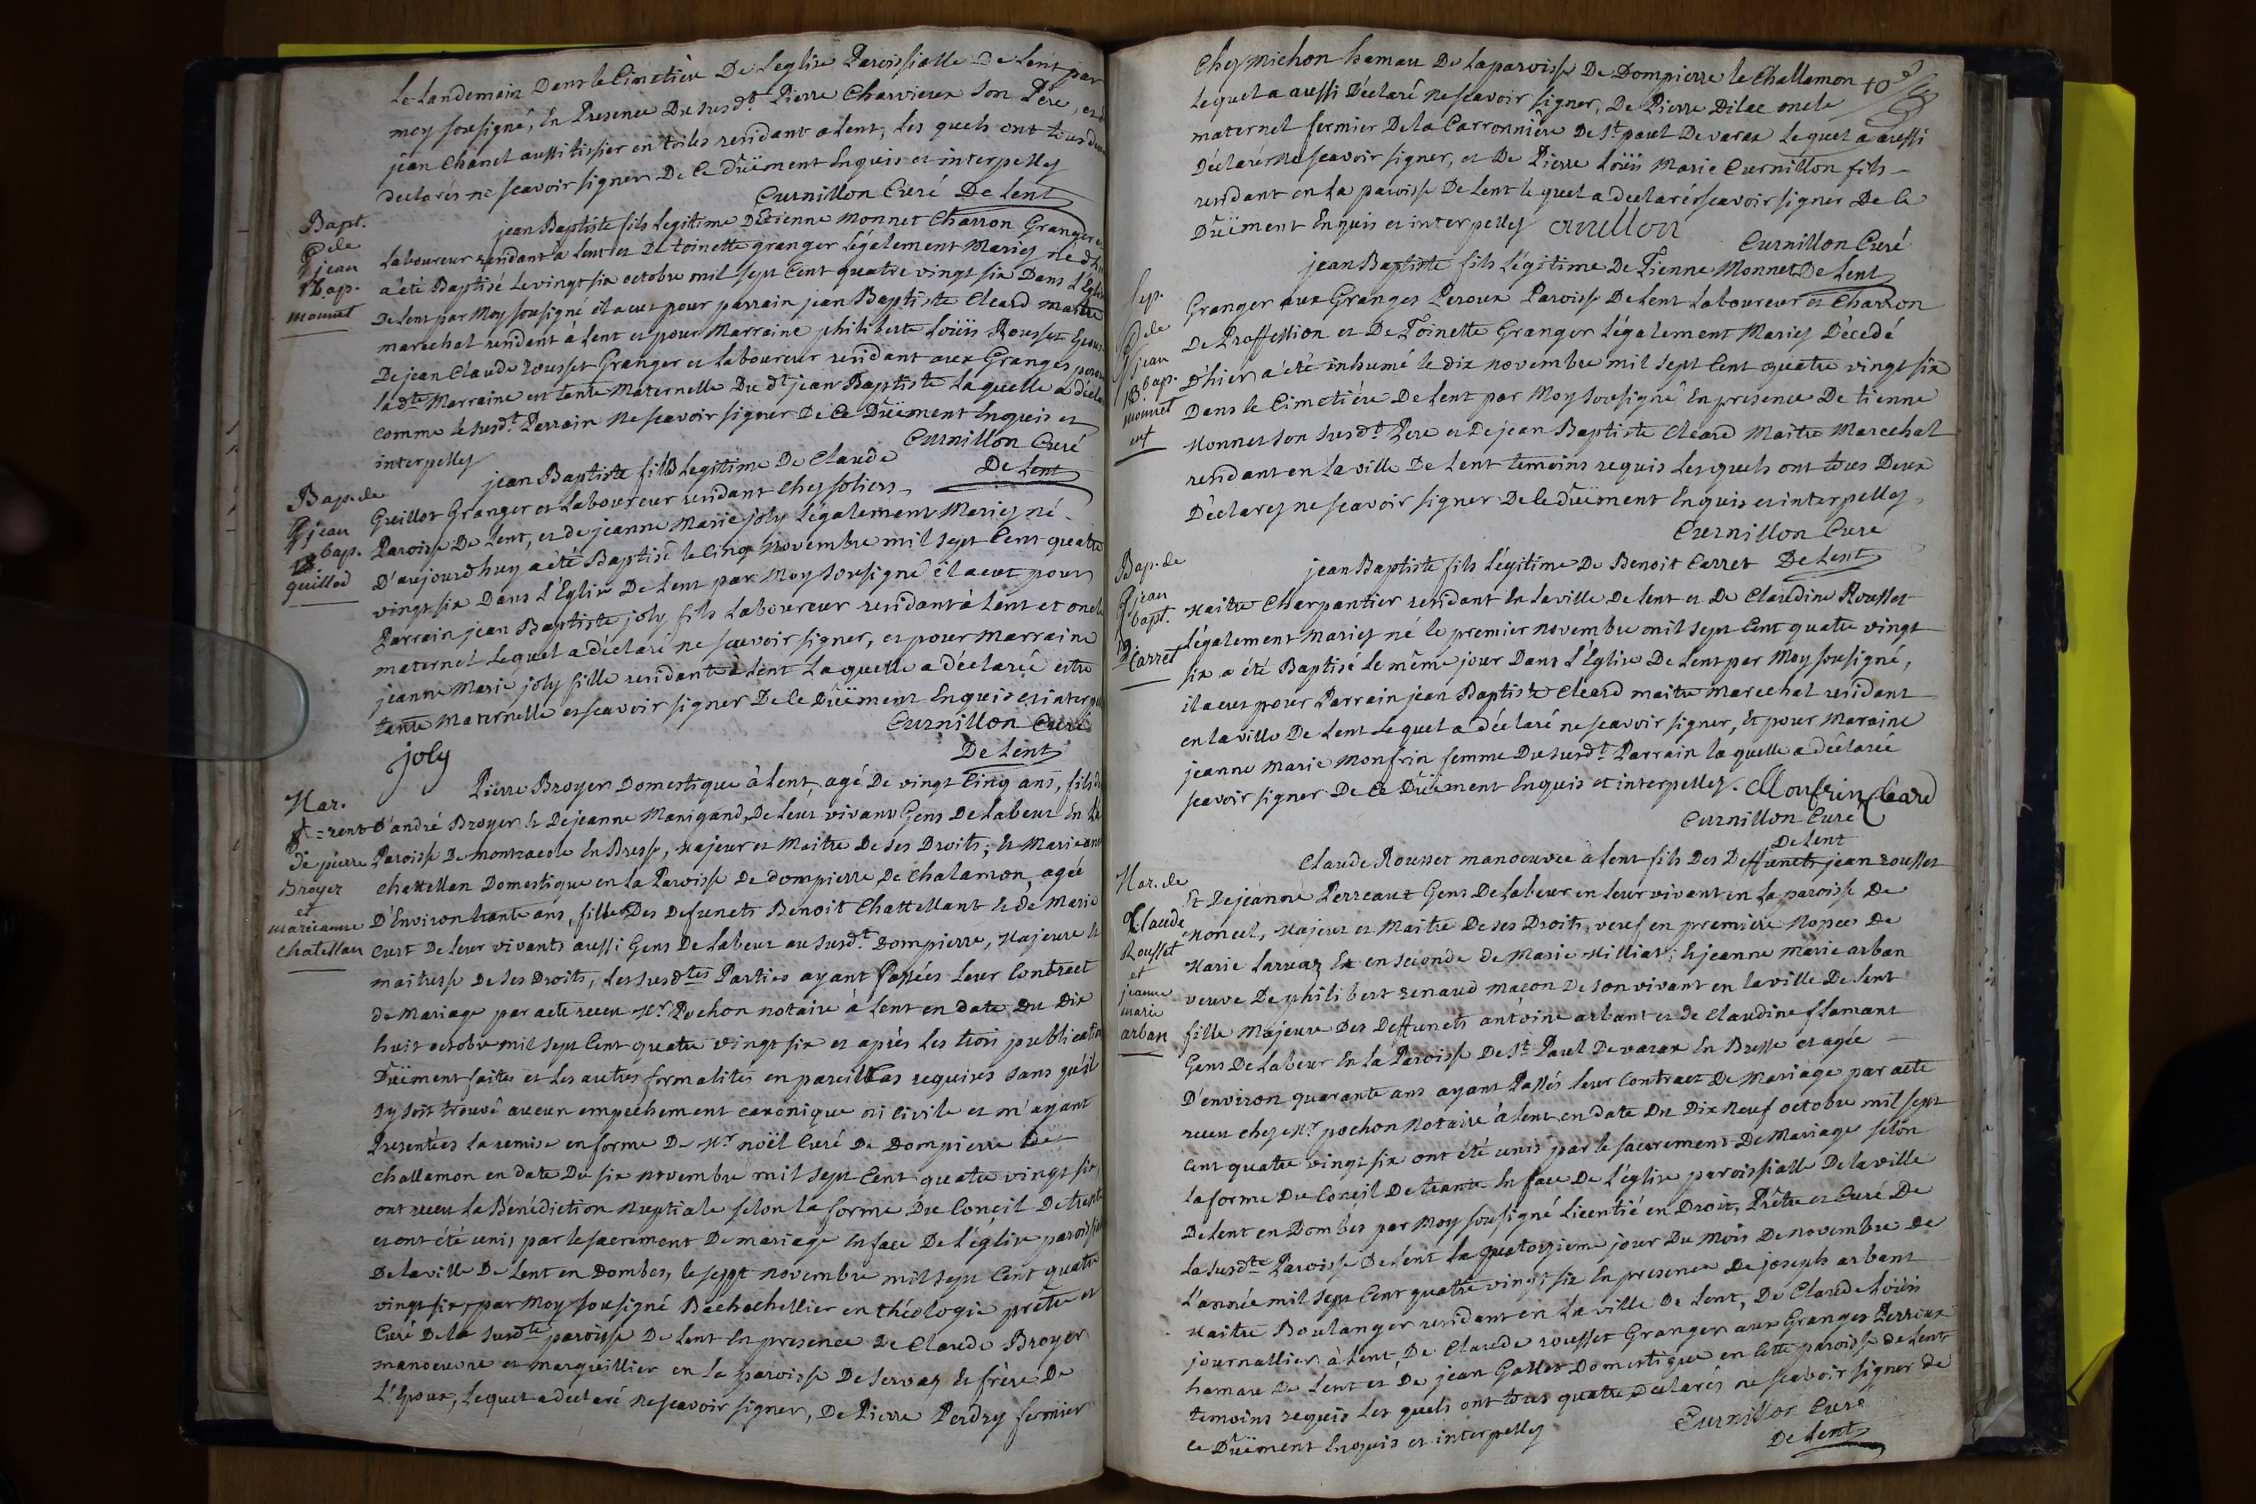 Le Landemain Dans le Cimetière De L'eglise Paroissialle De Lent par
moy sousigné, En Presence Du susdt Pierre Charvieux son Père, et
jean Chanel aussi tissier en toiles residant a Lent, Les quels ont tous deux
declarés ne sçavoir signer De Ce Düement Enquis et interpellez
Curnillon Curé De Lent
Bapt.
de
jean
Bap.
monnet
jean Baptiste fils Legitime D'Etienne Monnet Charron Granger et
Laboureur residant à Lent et De toinette granger Légalement Mariez né d'hier
a été Baptisé Le vingt six octobre mil sept Cent quatre vingt six Dans L'Eglise
De Lent par Moy sousigné il a eut pour parrain jean Baptiste Cleard maitre
marechal residant à Lent et pour Marraine philiberte Loüis Rousset
De jean Claude rousset Granger et Laboureur residant aux Granges peroux
la dte Marraine est tante Maternelle Du dt jean Baptiste Laquelle a déclaré
Comme le susdt Parrain Ne sçavoir signer De Ce Düement Enquis et
interpellez
Curnillon Curé
De Lent
Bap. de
jean
bap.
guillod
jean Baptiste fils Legitime De Claude
Guillot Granger et Laboureur residant Chez soliers
Paroisse De Lent, et de jeanne Marie joly Légalement Mariez né
D'aujourdhuy a été Baptisé le Cinq Novembre mil sept Cent quatre
vingt six Dans L'Eglise De Lent par Moy sousigné il a eut pour
Parrain jean Baptiste joly fils Laboureur residant à Lent et oncle
maternel Lequel a déclaré ne scavoir signer, et pour Marraine
jeanne Marie joly fille residante à Lent Laquelle a déclarée être
tante Maternelle et scavoir signer De Ce Düement Enquis et interpellez
Curnillon Curé
joly
De Lent
Mar.
de pierre
Broyer
et
marianne
Chatellan
Pierre Broyer Domestique à Lent, agé De vingt Cinq ans, fils
D'andré Broyer & De jeanne Manigand, De Leur vivant Gens De Labeur En La
Paroisse De montracole En Bresse, Majeur et Maitre De ses Droits; & Marieanne
Chattellan Domestique en La Paroisse De Dompierre De Chalamon, agée
D'Environ trante ans, fille Des Defunets Benoit Chattellant & de Marie
Curt De Leur vivants aussi Gens De Labeur au susdt Dompierre, Majeure &
maitresse De ses Droits, Les susdtes Parties ayant Passées Leur Contract
de Mariage par acte receu Mr Pochon notaire à Lent en date Du Dix
huit octobre mil sept Cent quatre vingt six et après Les trois publications
Düement faites et Les autres formalités en pareil Cas requises sans qu'il
s'y soit trouvé aucun empechement canonique ni Civile et m'ayant
Presentées La remise en forme De Mr noël Curé De Dompierre De
Challamon en date Du six novembre mil sept Cent quatre vingt six
ont receu La Bénédiction Nuptiale selon La forme Du Conçil De trente
et ont été unis par le sacrement De mariage En face De L'église paroissialle
De la ville De Lent en Dombes, le sept novembre mil sept Cent quatre
vingt six, par Moy sousigné Bachachellier en théologie prêtre et
Curé De La susdte paroisse De Lent En presence De Claude Broyer
manoeuvre et marguillier en La paroisse De servas & frère De
L'Epoux, Lequel a declaré Ne scavoir signer, De Pierre Perdry fermier
Chez Michon hamau De La paroisse De Dompierre le Challamon
Lequel a aussi Déclaré Ne scavoir signer, De Pierre Dilac oncle
maternel fermier De La Carronnière De St paul De varax Lequel a aussi
Déclaré Ne scavoir signer, et De Pierre Loüis Marie Curnillon fils
residant en La paroisse De Lent le quel a declaré scavoir signer De Ce
Düement Enquis et interpellez
Curnillon Curé
De Lent
Sep.
de
jean
bap.
monnet
enf
jean Baptiste fils Légitime De Tienne Monnet
Granger aux Granges Peroux Paroisse De Lent Laboureur et Charron
De Proffession et De Toinette Granger Légalement Mariez Décedé
D'hier a été inhumé le dix novembre mil sept Cent quatre vingt six
Dans le Cimetière De Lent par Moy sousigné En presence De tienne
Monnet son susdt Pere et De jean Baptiste Cleard Maitre Marechal
residant en La ville De Lent temoins requis Lesquels ont tous Deux
Déclarez ne scavoir signer De Ce Düement Enquis et interpellez
Curnillon Curé
De Lent
Bap. de
jean
bapt.
Carret
jean Baptiste fils Légitime De Benoit Carret
Maitre Charpantier residant En La ville De Lent et De Claudine Rousset
Légalement Mariez né le premier Novembre mil sept Cent quatre vingt
six a été Baptisé Le même jour Dans L'Eglise De Lent par Moy sousigné,
il a eut pour Parrain jean Baptiste Cleard maitre marechal residant
en la ville De Lent Lequel a déclaré ne scavoir signer, Et pour Maraine
jeanne Marie Monfrin femme Du susdt Parrain laquelle a déclarée
scavoir signer De Ce Düement Enquis et interpellez. Monfrin Cleard
Curnillon Curé
De Lent
Mar. de
Claude
Rousset
et
jeanne
marie
arban
Claude Rousset manoeuvre à Lent fils Des Deffunets jean rousset
Et De jeanne Perreaut Gens De Labeur en Leur vivant en La paroisse De
Moncel, Majeur et Maitre De ses Droits, veuf en premiere Nopces De
Marie Larruaz Et en seconde de Marie Milliat; & jeanne Marie arban
veuve De philibert renaud maçon De son vivant en la ville De Lent
fille Majeure Des Deffunets antoine arbant et de Claudine flamant
Gens De Labeur En La Paroisse De St Paul De varax En Bresse et agée
D'environ quarante ans ayant Passés leur Contract De Mariage par acte
receu chez Mr pochon Notaire à Lent en date Du Dix Neuf octobre mil sept
Cent quatre vingt six ont été unis par le sacrement De Mariage selon
la forme Du Conçil De trante En face De L'église paroissialle De la ville
De Lent en Dombes par Moy sousigné Licentié en Droit, Prêtre et Curé De
La susdte Paroisse De Lent Le quatorzieme jour Du Mois De novembre De
L'année mil sept Cent quatre vingt six En presence De joseph arbant
Maitre Boulanger residant en La ville De Lent, De Claude Loüis
journallier à Lent, De Claude rousset Granger aux Granges Perroux
hamau De Lent et De jean Gallet Domestique en Cette paroisse de Lent
temoins requis Les quels ont tous quatre declarés ne scavoir signer de
ce Düement Enquis et interpellez
Curnillon Curé
De Lent